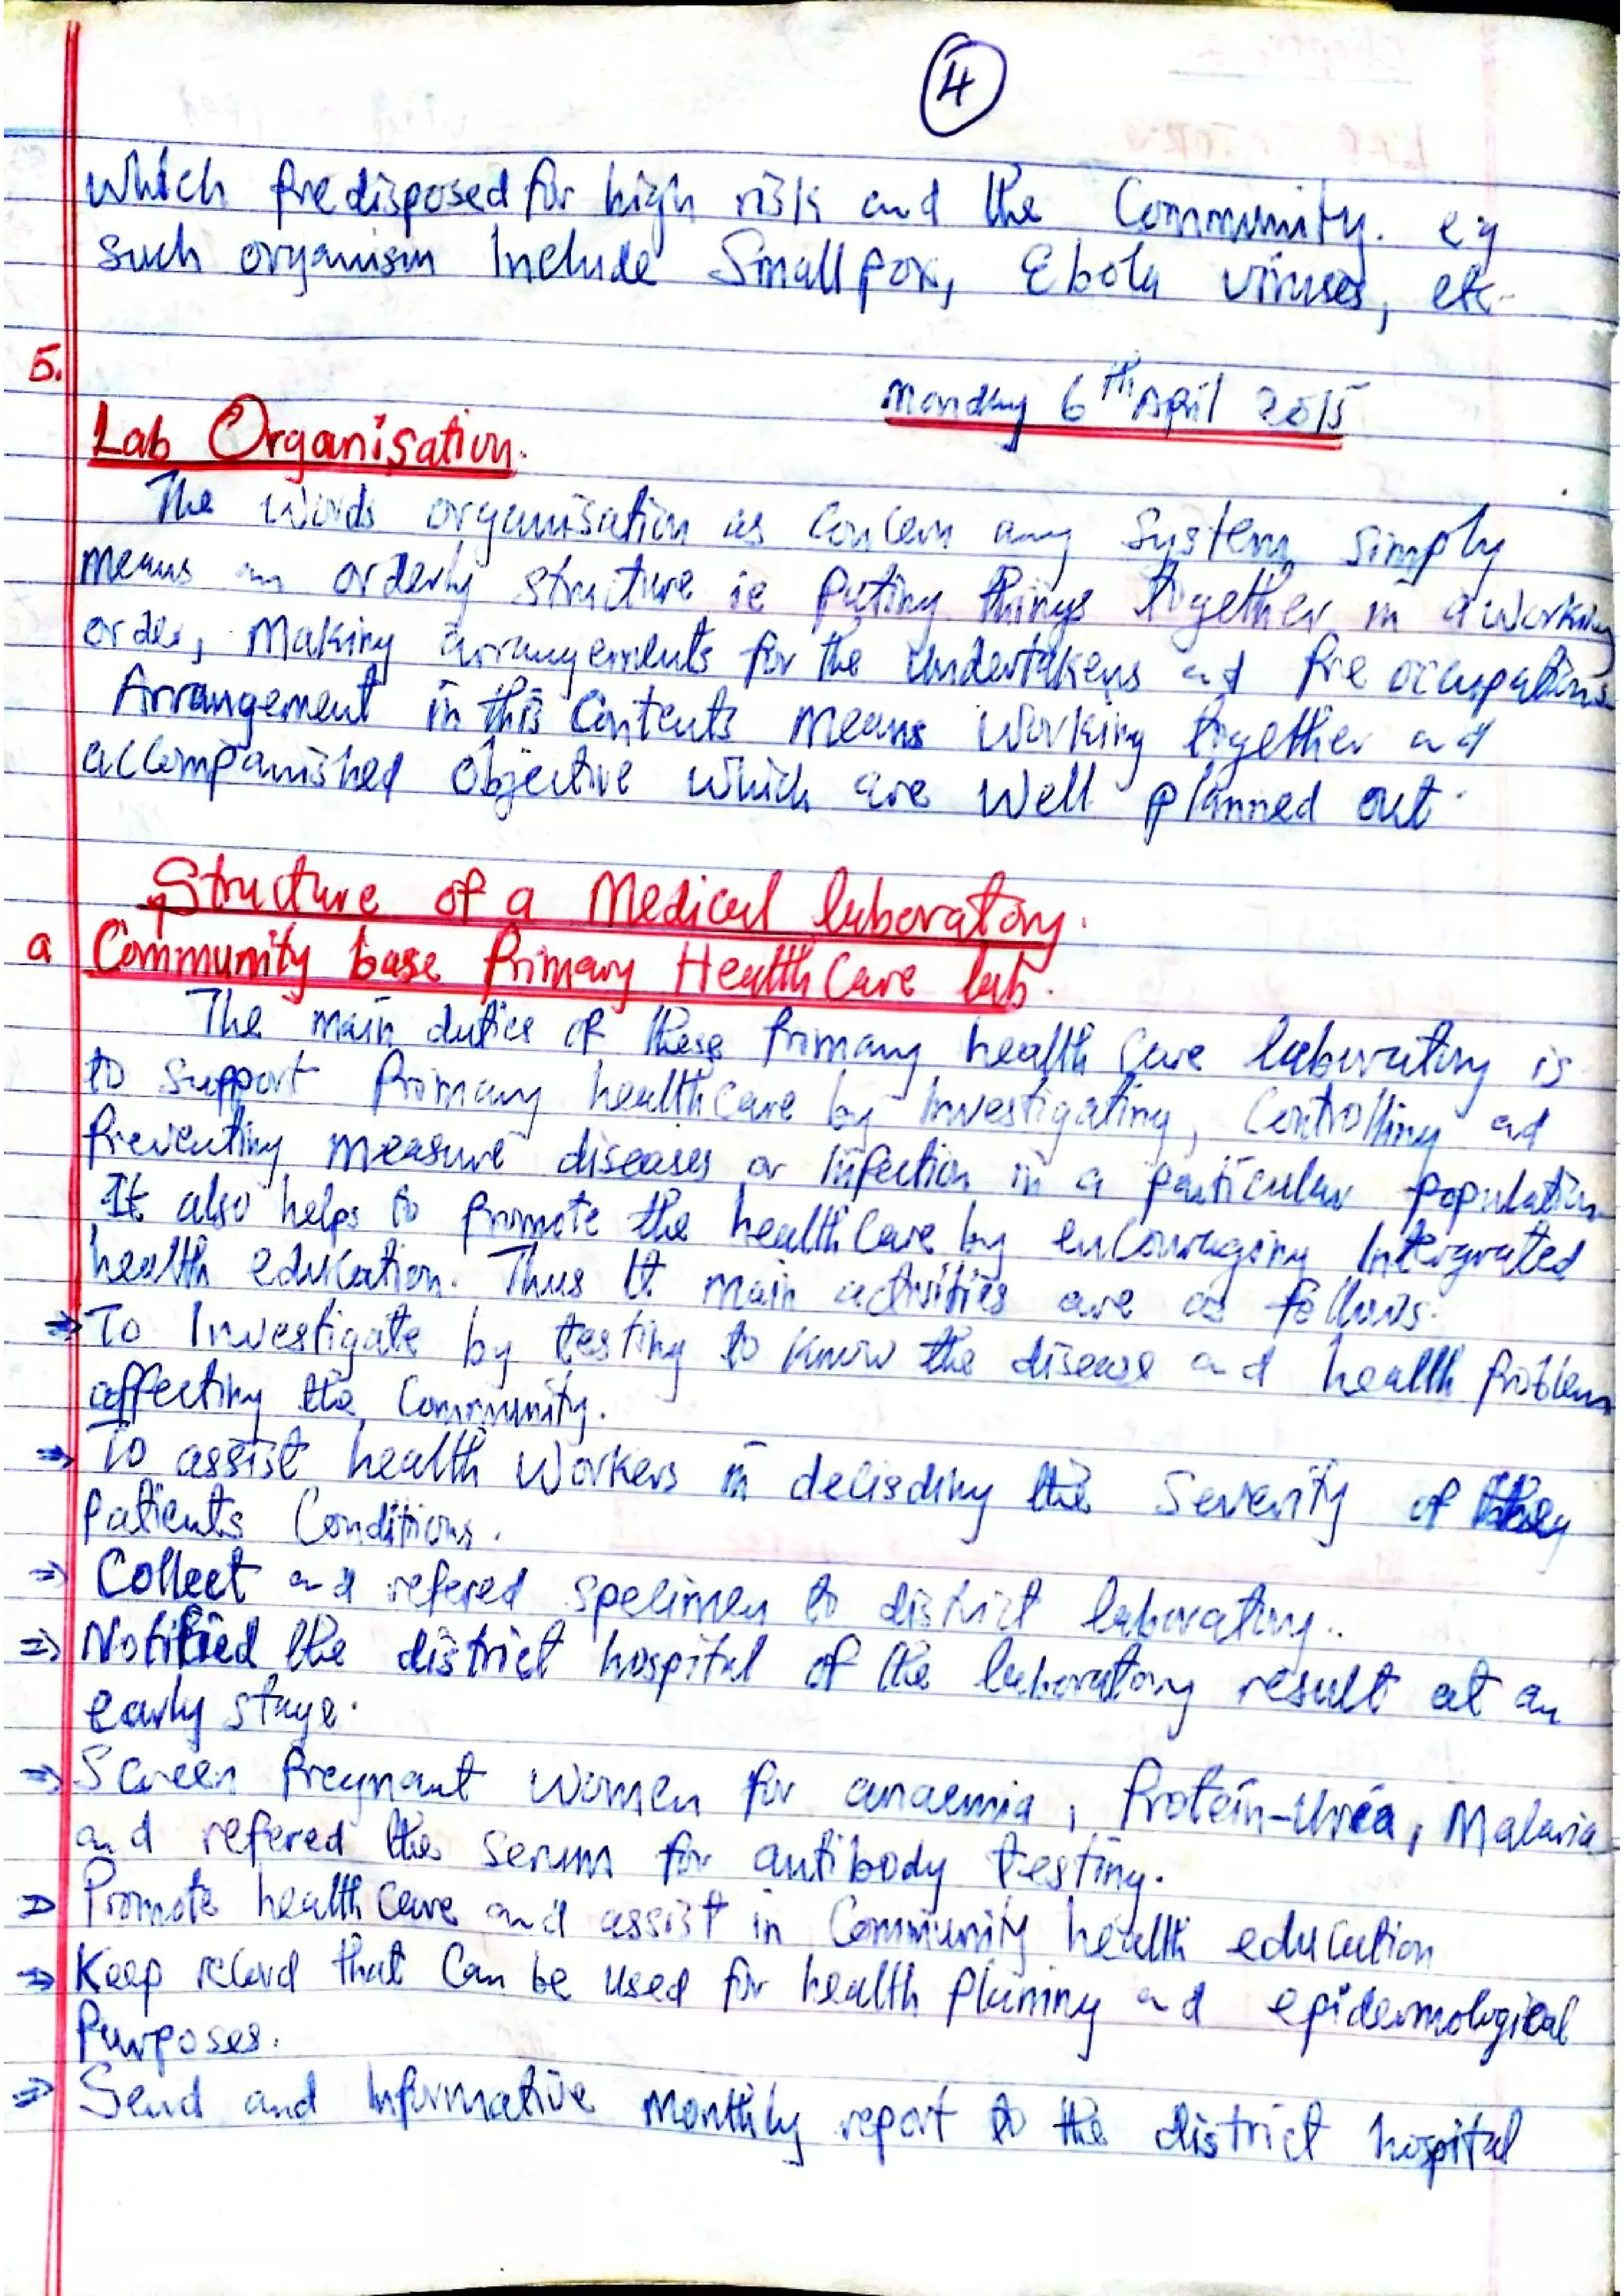 4
which predisposed for high risk and the Community. eg
such organism Include Smallpox, Ebola viruses, etc-
5.
Monday 6th April 2015
Lab Organisation.
The words organisation as concern any system simply
means an orderly structure ie puting things together in a working
order, Making arrangements for the undertakens and pre occupations
Arrangement in this Contents means working together and
accompanished objective which are well planned out.
Structure of a Medical laboratory.
a Community base Primary Health Care lab.
The main duties of these primary health care laboratory is
to support Primary health care by Investigating, Controlling and
Preventing measure diseases or Infection in a particular population
It also helps to promote the health care by encouraging Intergrated
health education. Thus It main activities are as follows.
⇒ To Investigate by testing to know the disease and health problem
affecting the Community.
⇒ To assist health workers in decisding the Severity of they
patients Conditions.
⇒ Collect and refered specimen to district laboratory..
⇒ Notified the district hospital of the laboratory result at an
early stage.
⇒ Screen Pregnant women for anaemia, Protein-urea, Malaria
and refered the serum for antibody testing.
⇒ Promote health care and assist in Community health education
⇒ Keep record that can be used for health planning and epidermological
Purposes.
⇒ Send and Informative monthly report to the district hospital